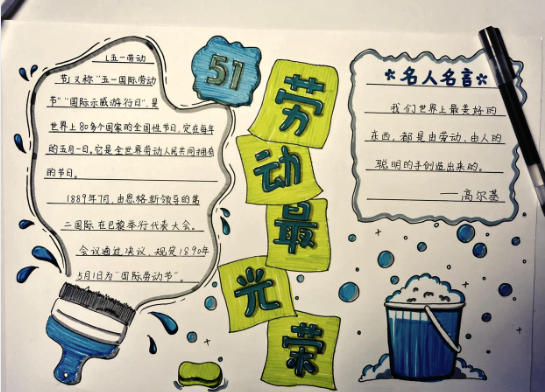 51
劳
动
最
光
荣
(五一劳动
节)又称"五一国际劳动
节""国际示威游行日",是
世界上80多个国家的全国性节日,定在每年
的五月一日。它是全世界劳动人民共同拥有
的节日。
1889年7月,由恩格斯领导的第
二国际在巴黎举行代表大会。
会议通过决议,规定1890年
5月1日为"国际劳动节"。
名人名言
我们世界上最美好的
东西,都是由劳动、由人的
聪明的手创造出来的。
——高尔基